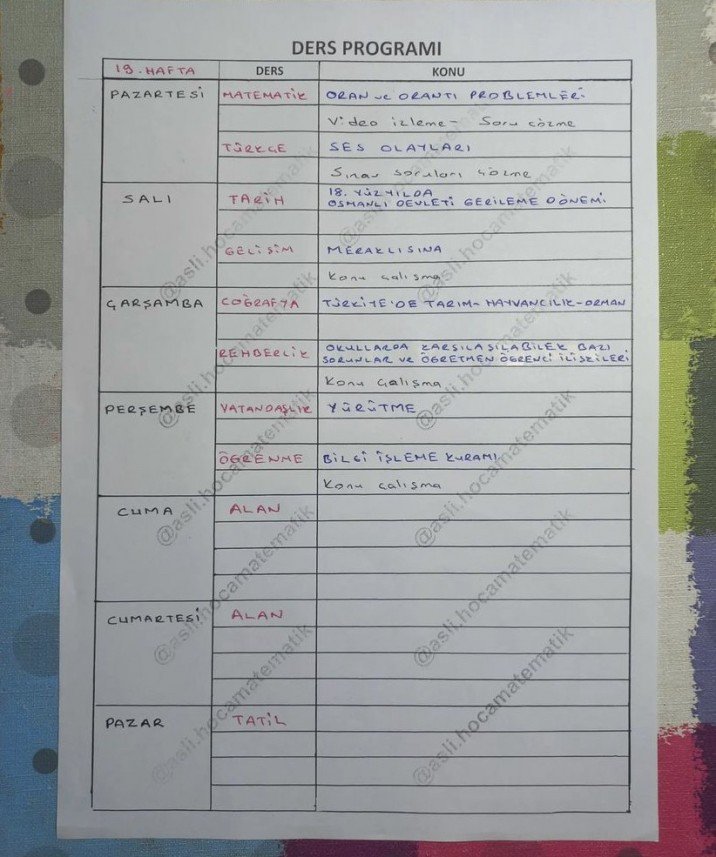 DERS PROGRAMI
19. HAFTA DERS KONU
PAZARTESİ MATEMATİK ORAN ve ORANTI PROBLEMLERİ
Video izleme - Soru çözme
TÜRKÇE SES OLAYLARI
Sınav soruları çözme
SALI TARİH 18. YÜZYILDA
OSMANLI DEVLETİ GERİLEME DÖNEMİ
GELİŞİM MERAKLISINA
Konu çalışma
ÇARŞAMBA COĞRAFYA TÜRKİYE'DE TARIM-HAYVANCILIK-ORMAN
REHBERLİK OKULLARDA KARŞILAŞILABİLEK BAZI
SORUNLAR ve ÖĞRETMEN ÖĞRENCİ İLİŞKİLERİ
Konu çalışma
PERŞEMBE VATANDAŞLIK YÜRÜTME
ÖĞRENME BİLGİ İŞLEME KURAMI
Konu çalışma
CUMA ALAN
CUMARTESİ ALAN
PAZAR TATİL
@asli.hocamatematik
@asli.hocamatematik
@asli.hocamatematik
@asli.hocamatematik
@asli.hocamatematik
@asli.hocamatematik
@asli.hocamatematik
@asli.hocamatematik
@asli.hocamatematik
@asli.hocamatematik